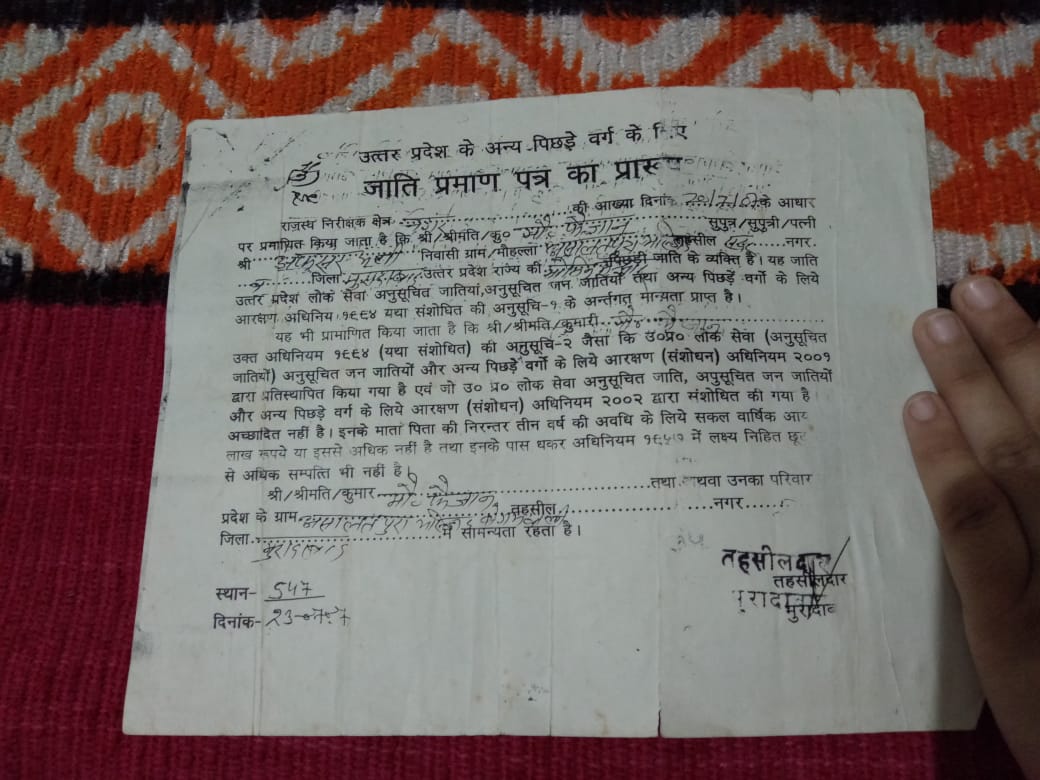 उत्तर प्रदेश के अन्य पिछड़े वर्ग के लिए
जाति प्रमाण पत्र का प्रारूप
राजस्व निरीक्षक क्षेत्र की आख्या दिनांक के आधार
पर प्रमाणित किया जाता है कि श्री/श्रीमति/कु० मौ० फैजान सुपुत्र/सुपुत्री/पत्नी
श्री निवासी ग्राम/मौहल्ला तहसील नगर.
जिला मुरादाबाद उत्तर प्रदेश राज्य की पिछड़ी जाति के व्यक्ति है। यह जाति
उत्तर प्रदेश लोक सेवा अनुसूचित जातियां,अनुसूचित जन जातियों तथा अन्य पिछड़ें वर्गो के लिये
आरक्षण अधिनिय १९९४ यथा संशोधित की अनुसूचि-१ के अर्न्तगत् मान्यता प्राप्त है।
यह भी प्रामाणित किया जाता है कि श्री/श्रीमति/कुमारी मौ० फैजान
उक्त अधिनियम १९९४ (यथा संशोधित) की अनुसूचि-२ जैसा कि उ०प्र० लोक सेवा (अनुसूचित
जातियों) अनुसूचित जन जातियों और अन्य पिछड़े वर्गो के लिये आरक्षण (संशोधन) अधिनियम २००१
द्वारा प्रतिस्थापित किया गया है एवं जो उ० प्र० लोक सेवा अनुसूचित जाति, अपुसूचित जन जातियों
और अन्य पिछड़े वर्ग के लिये आरक्षण (संशोधन) अधिनियम २००२ द्वारा संशोधित की गया है।
अच्छादित नहीं है। इनके माता पिता की निरन्तर तीन वर्ष की अवधि के लिये सकल वार्षिक आय
लाख रूपये या इससे अधिक नहीं है तथा इनके पास धकर अधिनियम में लक्ष्य निहित छूट
से अधिक सम्पत्ति भी नहीं है।
श्री/श्रीमति/कुमार मौ० फैजान तथा अथवा उनका परिवार
प्रदेश के ग्राम असालतपुरा तहसील नगर
जिला में सामन्यता रहता है।
मुरादाबाद
स्थान-
दिनांक-
तहसीलदार
तहसीलदार
मुरादाबाद
मुरादाब